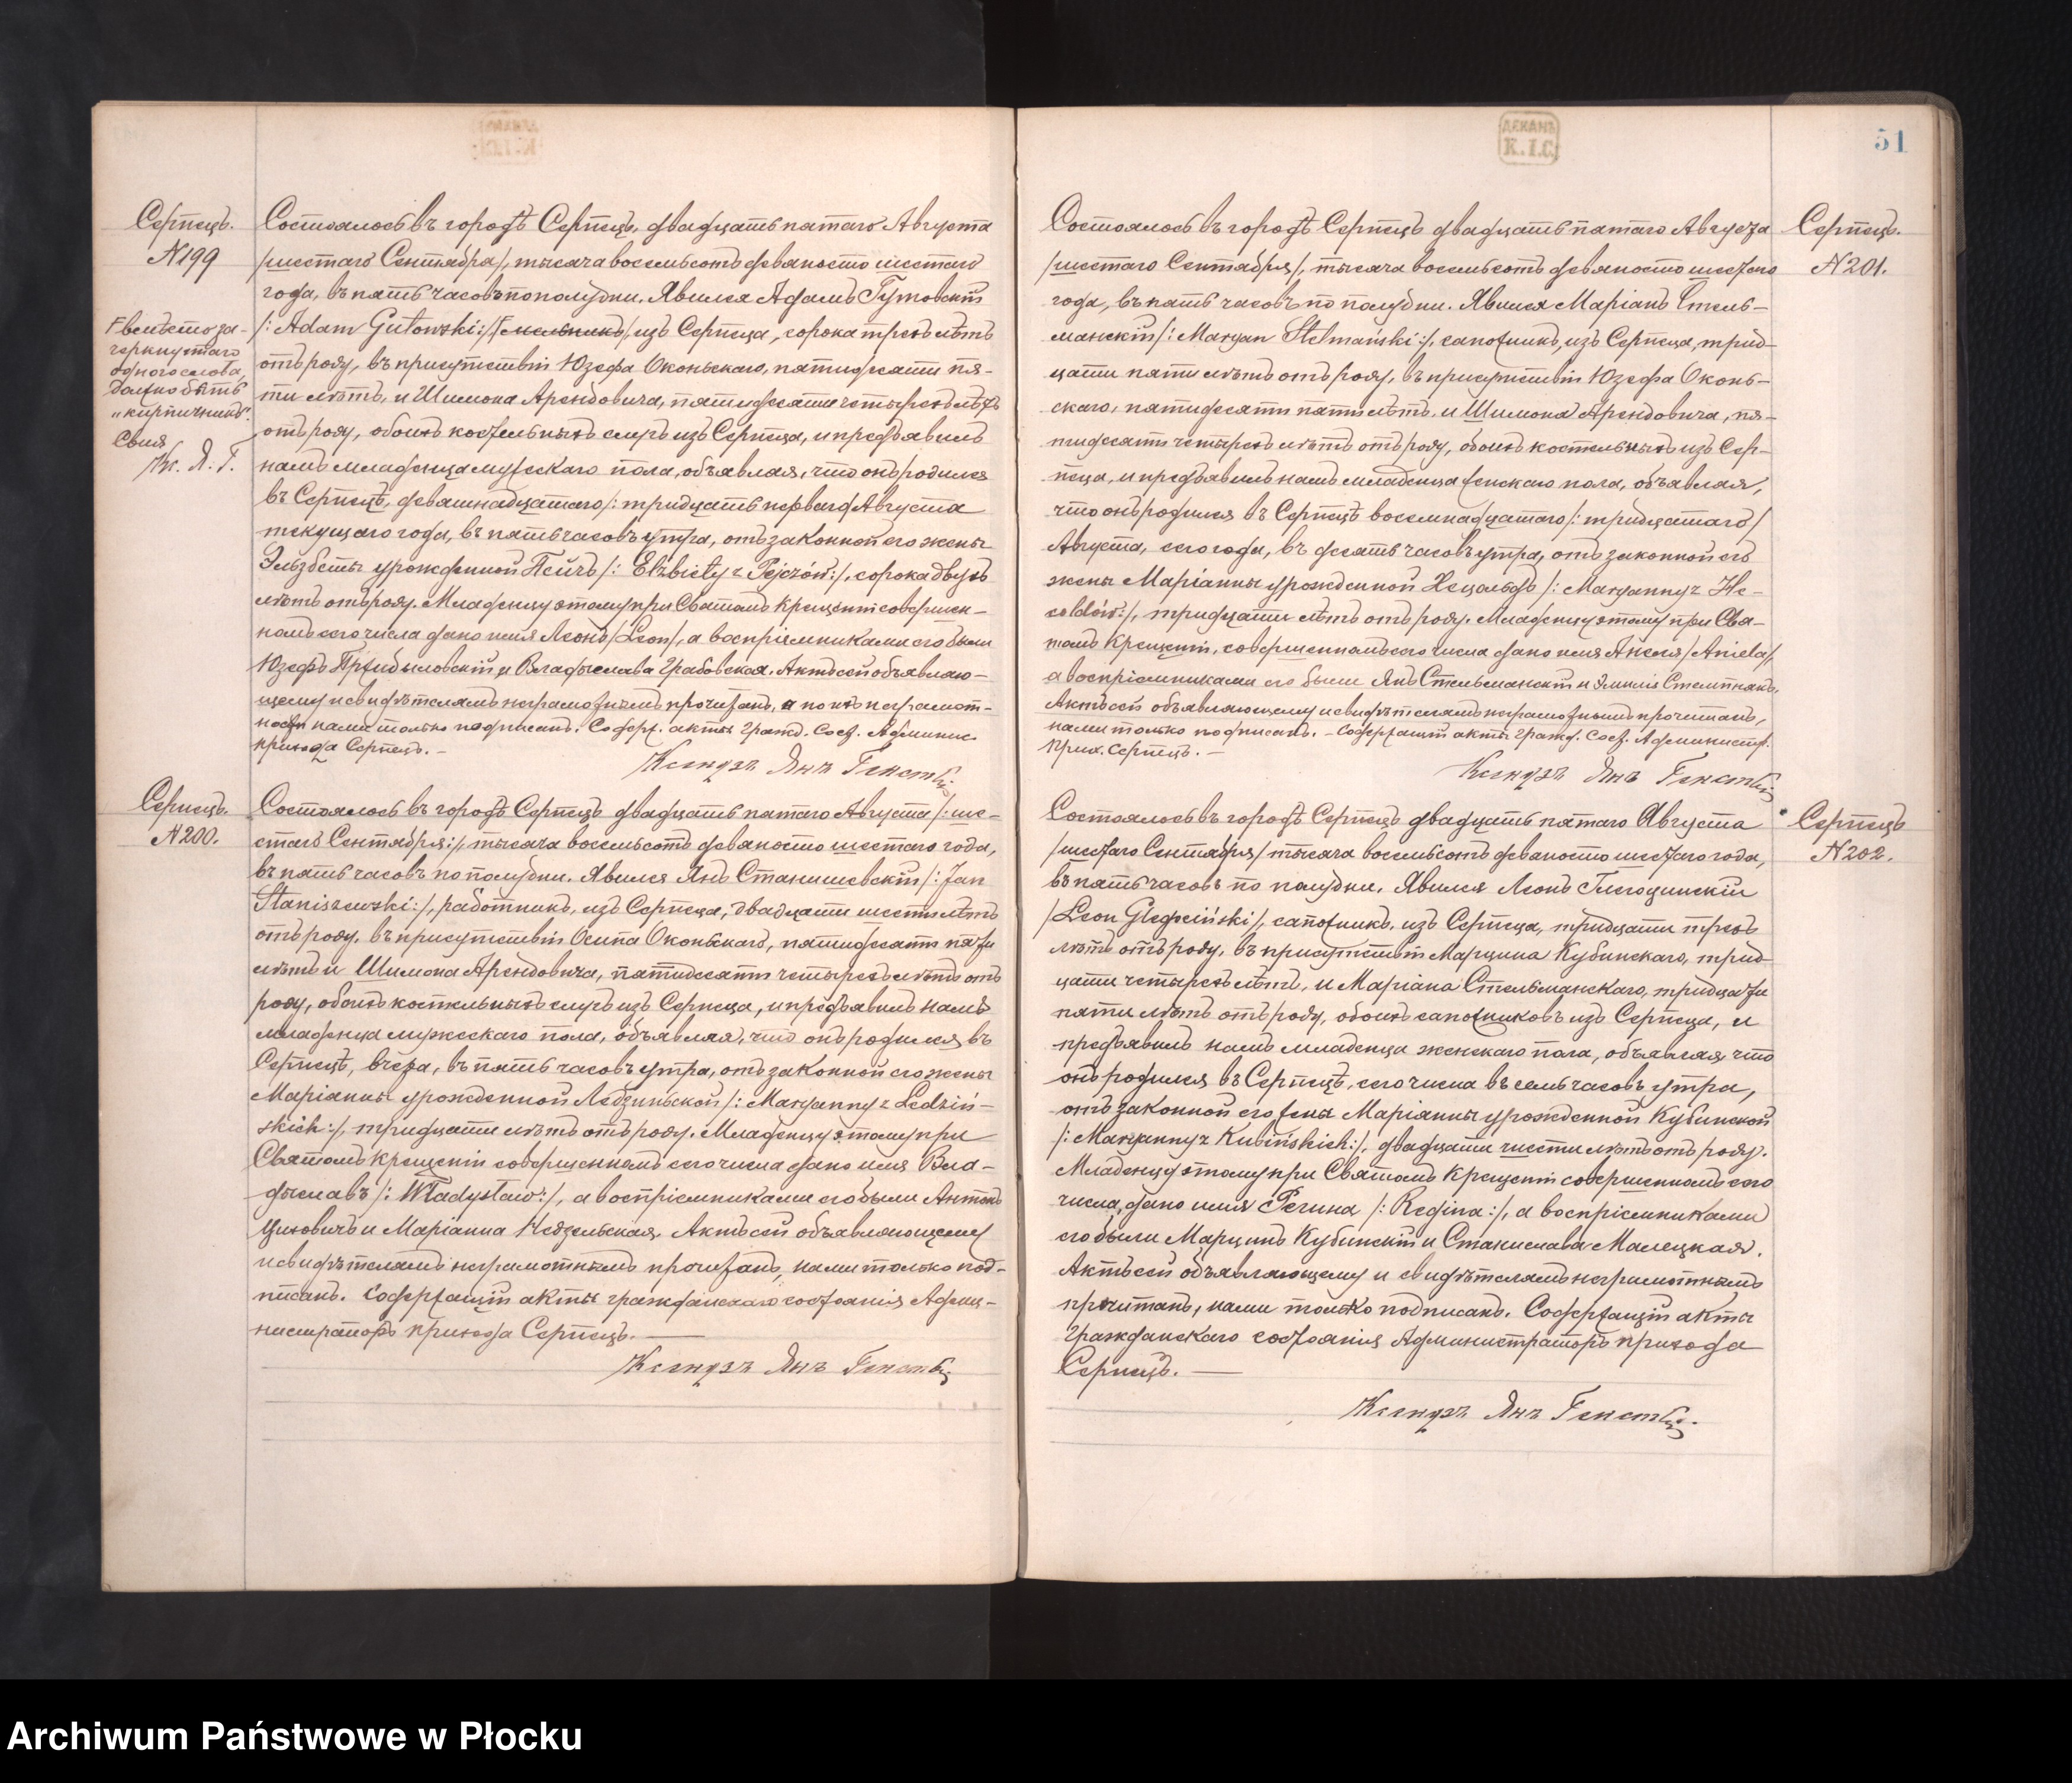 Серпецъ.
N199
Состоялось въ городѣ Серпецъ, двадцать пятаго Августа
/шестаго Сентября/, тысяча восемьсотъ девяносто шестаго
года, въ пять часовъ по полудни. Явился Адамъ Гутовскій
/: Adam Gutowski:/, изъ Серпеца, сорока трехъ лѣтъ
отъ роду, въ присутствіи Юзефа Оконьскаго, пятидесяти пя-
ти лѣтъ, и Шимона Арендовича, пятидесяти четырехъ лѣтъ
отъ роду, обоихъ костельныхъ слугъ изъ Серпеца, и предъявилъ
намъ младенца мужескаго пола, объявляя, что онъ родился
въ Серпецѣ, девятнадцатаго /: тридцать перваго/ Августа
текущаго года, въ пять часовъ утра, отъ законной его жены
Эльзбеты урожденной Пейчъ /: Elżbiety z Pejczów:/, сорока двухъ
лѣтъ отъ роду. Младенцу этому при Святомъ Крещеніи совершен-
номъ сего числа дано имя Леонъ /Leon/, а воспріемниками его были
Юзефъ Пршибыловскій и Владыслава Грабовская. Актъ сей объявляю-
щему и свидѣтелямъ неграмотнымъ прочитанъ, а по ихъ неграмот-
ности нами только подписанъ. Содерж. акты Гражд. Сост. Админис.
прихода Серпецъ. -
Ксендзъ Янъ
F вмѣсто за-
черкнутаго
одного слова,
должно быть
„кирпичникъ".
Кс. Я. Г.
Серпецъ.
N200.
Состоялось въ городѣ Серпецъ двадцать пятаго Августа /: ше-
стаго Сентября:/, тысяча восемьсотъ девяносто шестаго года,
въ пять часовъ по полудни. Явился Янъ Станишевскій /: Jan
Staniszewski:/, работникъ, изъ Серпеца, двадцати шести лѣтъ
отъ роду, въ присутствіи Осипа Оконьскаго, пятидесяти пяти
лѣтъ и Шимона Арендовича, пятидесяти четырехъ лѣтъ отъ
роду, обоихъ костельныхъ слугъ изъ Серпеца, и предъявилъ намъ
младенца мужескаго пола, объявляя, что онъ родился въ
Серпецѣ, вчера, въ пять часовъ утра, отъ законной его жены
Маріанны урожденной Ледзиньской /: Maryanny z Ledziń-
skich:/, тридцати лѣтъ отъ роду. Младенцу этому при
Святомъ Крещеніи совершенномъ сего числа дано имя Вла-
дыславъ /: Władysław:/, а воспріемниками его были Антонъ
Циховичъ и Маріанна Недзельская. Актъ сей объявляющему
и свидѣтелямъ неграмотнымъ прочитанъ, нами только под-
писанъ. Содержащій акты гражданскаго состоянія Адми-
нистраторъ прихода Серпецъ. —
Ксендзъ Янъ
ДЕКАНЪ
К.I.С.
51
Серпецъ.
N201.
Состоялось въ городѣ Серпецъ двадцать пятаго Августа
/шестаго Сентября/, тысяча восемьсотъ девяносто шестаго
года, въ пять часовъ по полудни. Явился Маріанъ Стель-
манскій /: Maryan Stelmański:/, сапожникъ, изъ Серпеца, трид-
цати пяти лѣтъ отъ роду, въ присутствіи Юзефа Оконь-
скаго, пятидесяти пяти лѣтъ, и Шимона Арендовича, пя-
тидесяти четырехъ лѣтъ отъ роду, обоихъ костельныхъ изъ Сер-
пеца, и предъявилъ намъ младенца женскаго пола, объявляя,
что онъ родился въ Серпецѣ восемнадцатаго /: тридцатаго/
Августа, сего года, въ десять часовъ утра, отъ законной его
жены Маріанны урожденной Хецольдъ /: Maryanny z He-
coldów:/, тридцати лѣтъ отъ роду. Младенцу этому при Свя-
томъ Крещеніи, совершенномъ сего числа дано имя Анеля /Aniela/,
а воспріемниками его были Янъ Стельманскій и Эмилія Стемпнякъ.
Актъ сей объявляющему и свидѣтелямъ неграмотнымъ прочитанъ,
нами только подписанъ. - Содержащій акты Гражд. Сост. Администр.
прих. Серпецъ. -
Ксендзъ Янъ
Серпецъ
N202.
Состоялось въ городѣ Серпецъ двадцать пятаго Августа
/шестаго Сентября/ тысяча восемьсотъ девяносто шестаго года,
въ пять часовъ по полудни. Явился Леонъ
/Leon сапожникъ, изъ Серпеца, тридцати трехъ
лѣтъ отъ роду, въ присутствіи Марцина Кубинскаго, трид-
цати четырехъ лѣтъ, и Маріана Стельманскаго, тридцати
пяти лѣтъ отъ роду, обоихъ сапожниковъ изъ Серпеца, и
предъявилъ намъ младенца женскаго пола, объявляя что
онъ родился въ Серпецѣ, сего числа въ семь часовъ утра,
отъ законной его жены Маріанны урожденной Кубинской
/: Maryanny z Kubińskich:/, двадцати шести лѣтъ отъ роду.
Младенцу этому при Святомъ Крещеніи совершенномъ сего
числа, дано имя Регина /: Regina:/, а воспріемниками
его были Марцинъ Кубинскій и Станислава Малецкая.
Актъ сей объявляющему и свидѣтелямъ неграмотнымъ
прочитанъ, нами только подписанъ. Содержащій акты
Гражданскаго состоянія Администраторъ прихода
Серпецъ. —
Ксендзъ Янъ
Archiwum Państwowe w Płocku